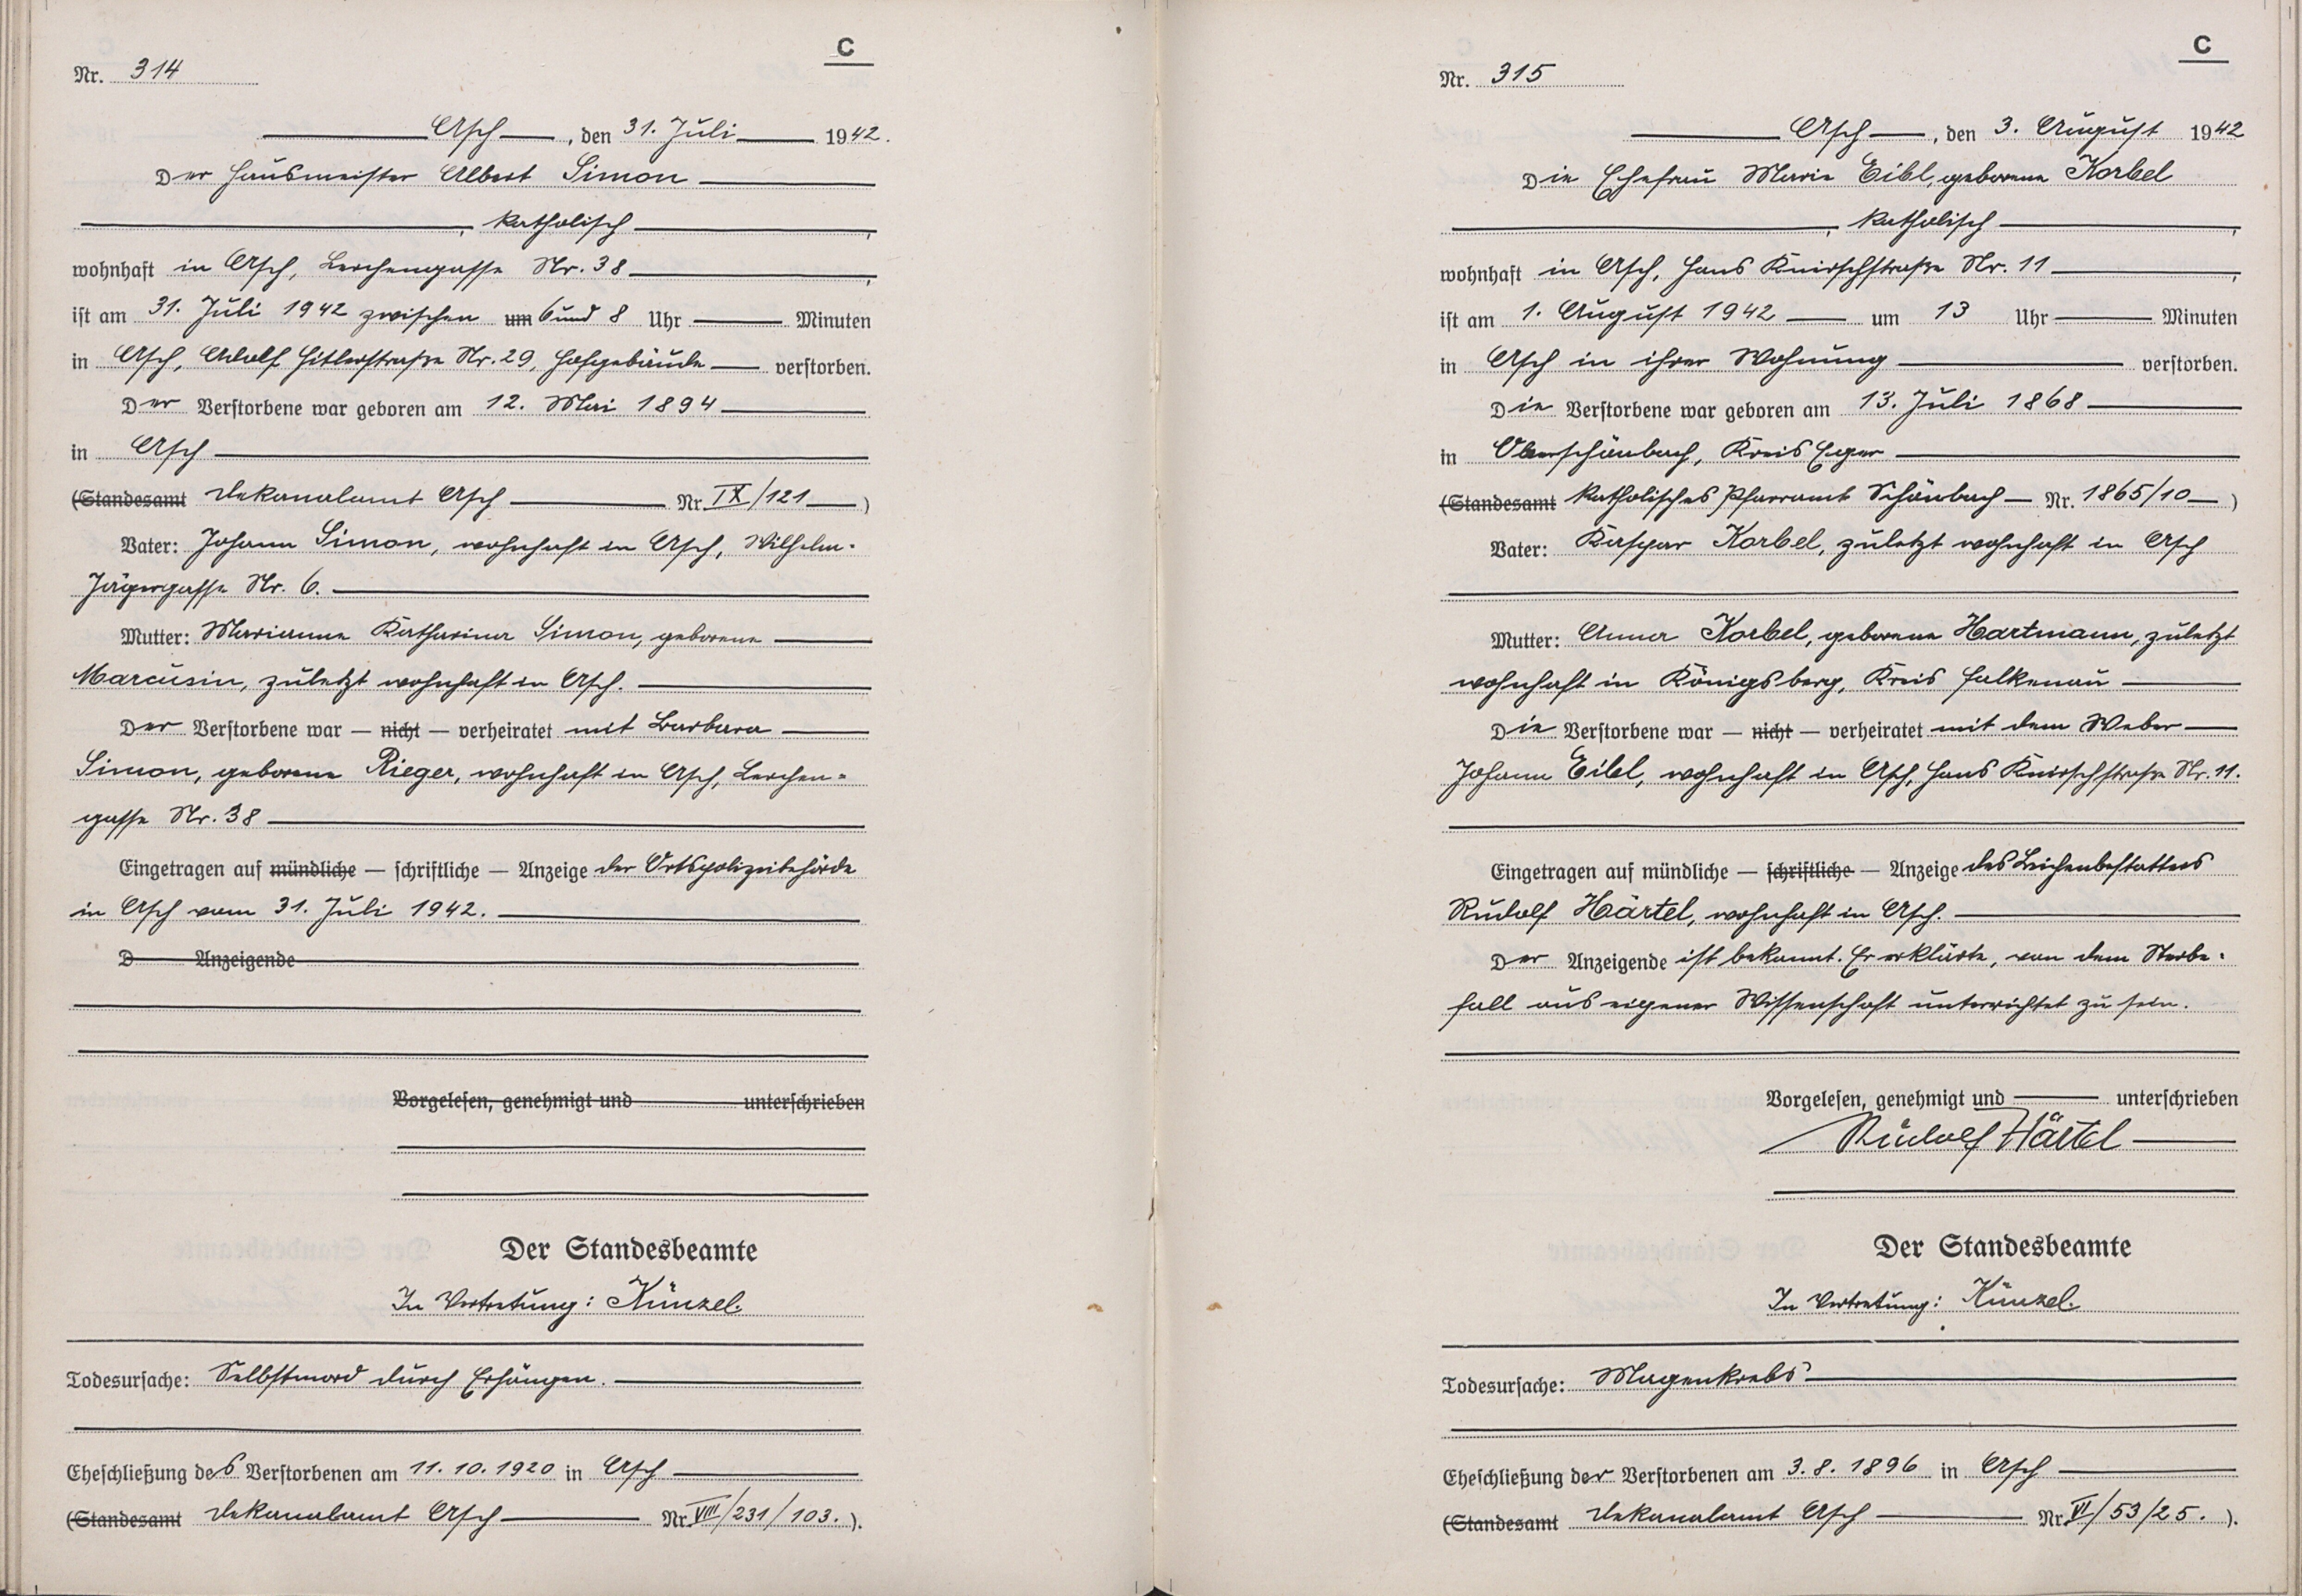 C
Nr. 314
Asch, den 31. Juli 1942.
Der Hausmeister Albert Simon
, katholisch,
wohnhaft in Asch, Lerchengasse Nr. 38,
ist am 31. Juli 1942 zwischen um 6 und 8 Uhr Minuten
in Asch, Adolf Hitlerstraße Nr. 29, Hofgebäude verstorben.
Der Verstorbene war geboren am 12. Mai 1894
in Asch
(Standesamt Dekanalamt Asch Nr. IX/121)
Vater: Johann Simon, wohnhaft in Asch, Wilhelm-
Jägergasse Nr. 6.
Mutter: Marianna Katharina Simon, geborene
Marcusin, zuletzt wohnhaft in Asch.
Der Verstorbene war — nicht — verheiratet mit Barbara
Simon, geborene Rieger, wohnhaft in Asch, Lerchen-
gasse Nr. 38
Eingetragen auf mündliche — schriftliche — Anzeige der Ortspolizeibehörde
in Asch vom 31. Juli 1942.
D Anzeigende
Vorgelesen, genehmigt und unterschrieben
Der Standesbeamte
In Vertretung: Künzel.
Todesursache: Selbstmord durch Erhängen.
Eheschließung des Verstorbenen am 11.10.1920 in Asch
(Standesamt Dekanalamt Asch Nr. VIII/231/103.).
C
Nr. 315
Asch, den 3. August 1942
Die Ehefrau Marie Eibl, geborene Korbel
, katholisch,
wohnhaft in Asch, Hans Knirschstraße Nr. 11,
ist am 1. August 1942 um 13 Uhr Minuten
in Asch in ihrer Wohnung verstorben.
Die Verstorbene war geboren am 13. Juli 1868
in Oberschönbach, Kreis Eger
(Standesamt Katholisches Pfarramt Schönbach Nr. 1865/10)
Vater: Kaspar Korbel, zuletzt wohnhaft in Asch
Mutter: Anna Korbel, geborene Hartmann, zuletzt
wohnhaft in Königsberg, Kreis Falkenau
Die Verstorbene war — nicht — verheiratet mit dem Weber
Johann Eibl, wohnhaft in Asch, Hans Knirschstraße Nr. 11.
Eingetragen auf mündliche — schriftliche — Anzeige des Leichenbestatters
Rudolf Härtel, wohnhaft in Asch.
Der Anzeigende ist bekannt. Er erklärte, von dem Sterbe-
fall aus eigener Wissenschaft unterrichtet zu sein.
Vorgelesen, genehmigt und unterschrieben
Rudolf Härtel
Der Standesbeamte
In Vertretung: Künzel.
Todesursache: Magenkrebs
Eheschließung der Verstorbenen am 3.8.1896 in Asch
(Standesamt Dekanalamt Asch Nr. VI/53/25.).